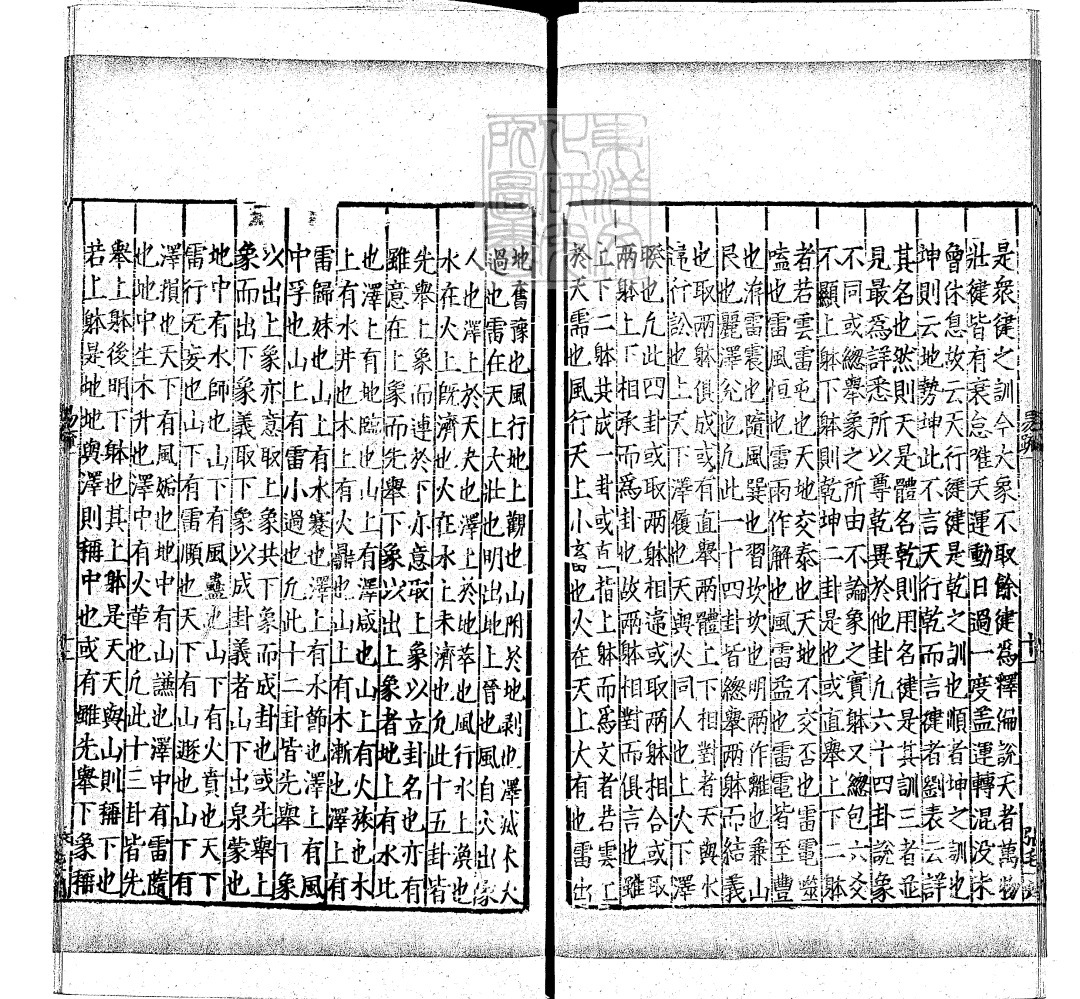 是眾健之訓今大象不取餘健為釋偏說天者萬物
壯健皆有衰怠唯天運動日過一度蓋運轉混沒未
曾休息故云天行健健是乾之訓也順者坤之訓也
坤則云地勢坤此不言天行乾而言健者劉表云詳
其名也然則天是體名乾則用名健是其訓三者並
見最為詳悉所以尊乾異於他卦凢六十四卦說象
不同或緫舉象之所由不論象之實躰又緫包六爻
不顯上躰下躰則乾坤二卦是也或直舉上下二躰
者若雲雷屯也天地交泰也天地不交否也雷電噬
嗑也雷風恒也雷雨作解也風雷益也雷電皆至豐
也洊雷震也隨風巽也習坎坎也明兩作離也兼山
艮也麗澤兊也凢此一十四卦皆緫舉兩躰而結義
也取兩躰俱成或有直舉兩體上下相對者天與水
違行訟也上天下澤履也天與火同人也上火下澤
睽也凢此四卦或取兩躰相違或取兩躰相合或取
兩躰上下相承而為卦也故兩躰相對而俱言也雖
上下二躰共成一卦或直指上躰而為文者若雲上
於天需也風行天上小畜也火在天上大有也雷出
地奮豫也風行地上觀也山附於地剥也澤滅木大
過也雷在天上大壯也明出地上晉也風自火出家
人也澤上於天夬也澤上於地萃也風行水上渙也
水在火上旣濟也火在水上未濟也凢此十五卦皆
先舉上象而連於下亦意取上象以立卦名也亦有
雖意在上象而先舉下象以出上象者地上有水比
也澤上有地臨也山上有澤咸也山上有火旅也木
上有水井也木上有火鼎也山上有木漸也澤上有
雷歸妹也山上有水蹇也澤上有水節也澤上有風
中孚也山上有雷小過也凢此十二卦皆先舉下象
以出上象亦意取上象共下象而成卦也或先舉上
象而出下象義取下象以成卦義者山下出泉蒙也
地中有水師也山下有風蠱也山下有火賁也天下
雷行无妄也山下有雷頤也天下有山遯也山下有
澤損也天下有風姤也地中有山謙也澤中有雷隨
也地中生木升也澤中有火革也凢此十三卦皆先
舉上躰後明下躰也其上躰是天天與山則稱下也
若上躰是地地與澤則稱中也或有雖先舉下象稱